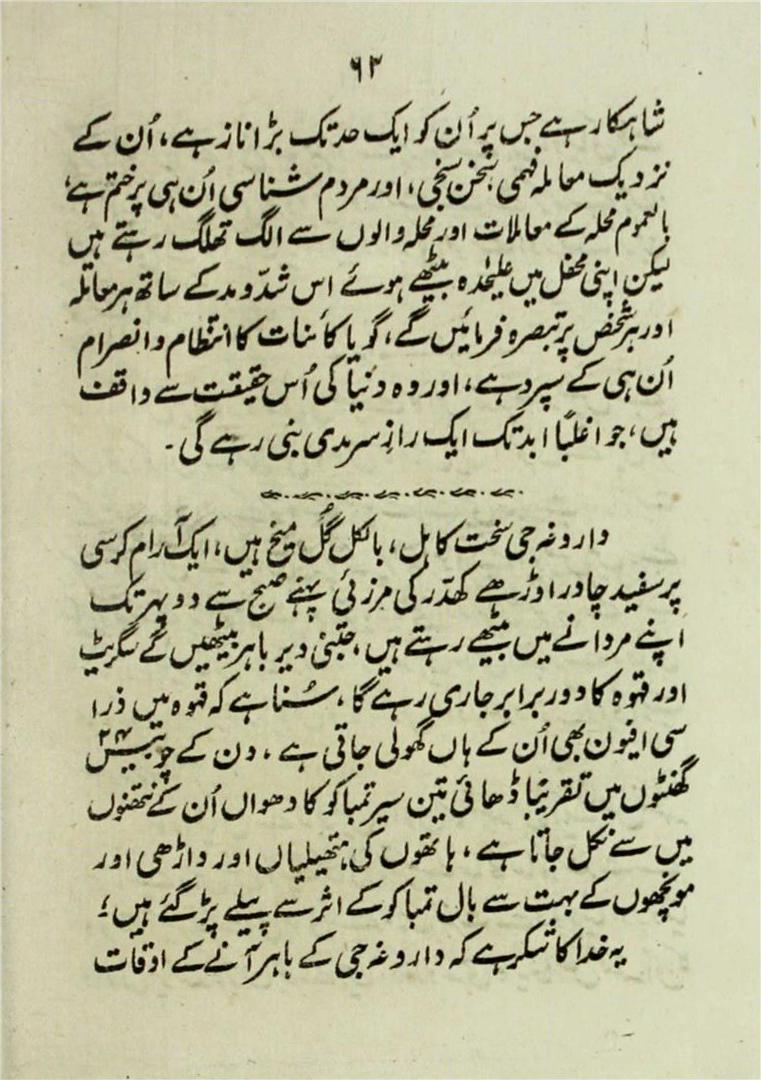 ٦٣
شاہکار ہے جس پر اُن کو ایک حد تک بڑا ناز ہے، اُن کے
نزدیک معاملہ فہمی، سخن سنجی، اور مردم شناسی اُن ہی پر ختم ہے،
بالعموم محلہ کے معاملات اور محلہ والوں سے الگ تھلگ رہتے ہیں
لیکن اپنی محفل میں علیحٰدہ بیٹھے ہوئے اس شدّومد کے ساتھ ہر معاملہ
اور ہر شخص پر تبصرہ فرمائیں گے، گویا کائنات کا انتظام و انصرام
اُن ہی کے سپرد ہے، اور وہ دنیا کی اُس حقیقت سے واقف
ہیں، جو اغلبًا ابد تک ایک رازِ سرمدی بنی رہے گی۔
داروغہ جی سخت کاہل، بالکل گُل میخ ہیں، ایک آرام کرسی
پر سفید چادر اوڑھے کھدّر کی مرزئی پہنے صبح سے دوپہر تک
اپنے مردانے میں بیٹھے رہتے ہیں، جتنی دیر باہر بیٹھیں گے سگریٹ
اور قہوہ کا دور برابر جاری رہے گا، سُنا ہے کہ قہوہ میں ذرا
سی افیون بھی اُن کے ہاں گھولی جاتی ہے، دن کے چوبیس ۲۴
گھنٹوں میں تقریبًا ڈھائی تین سیر تمباکو کا دھواں اُن کے نتھنوں
میں سے نکل جاتا ہے، ہاتھوں کی ہتھیلیاں اور داڑھی اور
مونچھوں کے بہت سے بال تمباکو کے اثر سے پیلے پڑ گئے ہیں؛
یہ خدا کا شکر ہے کہ داروغہ جی کے باہر آنے کے اوقات